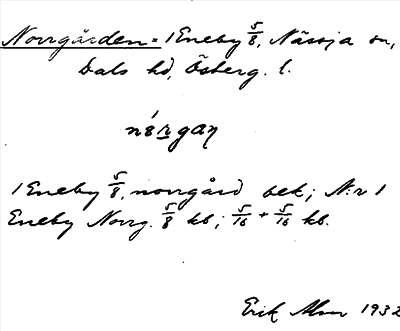 Norrgården = 1 Eneby 5/8, Nässja sn,
Dals hd, Österg. l.
nórgaɳ
1 Eneby 5/8, norrgård bek; N:r 1
Eneby Norrg. 5/8 kb; 5/16 + 5/16 kb.
Erik Abr 1932